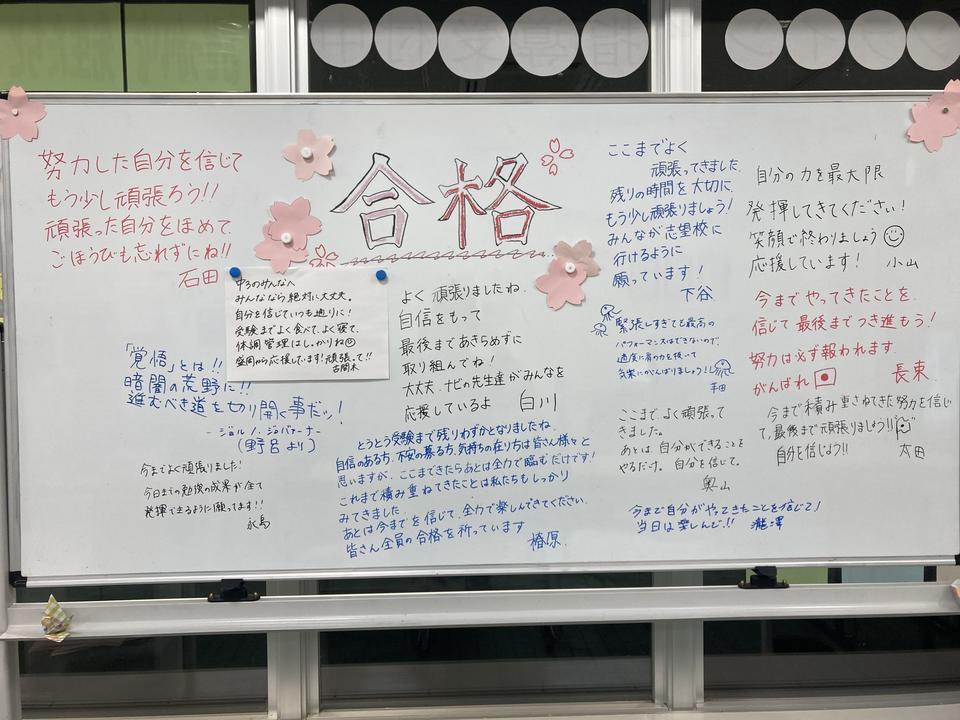 合格
努力した自分を信じて
もう少し頑張ろう!!
頑張った自分をほめて
ごほうびも忘れずにね!!
石田
中3のみんなへ
みんななら絶対に大丈夫。
自分を信じていつも通りに!
受験までよく食べて、よく寝て、
体調管理はしっかりね
盛岡から応援しています!頑張って!!
古関木
「覚悟」とは!!
暗闇の荒野に!!
進むべき道を切り開く事だッ!
-ジョルノ・ジョバァーナ-
(野呂より)
今までよく頑張りました!
今日までの勉強の成果が全て
発揮できるように願ってます!!
永島
よく頑張りましたね。
自信をもって
最後まであきらめずに
取り組んでね!
大丈夫、ナビの先生達がみんなを
応援しているよ 白川
とうとう受験まで残りわずかとなりましたね。
自信のある方、不安の募る方、気持ちの在り方は皆さん様々と
思いますが、ここまできたらあとは全力で臨むだけです!
これまで積み重ねてきたことは私たちもしっかり
みてきました。
あとは今までを信じて、全力で楽しんできてください。
皆さん全員の合格を祈っています 椿原
ここまでよく
頑張ってきました。
残りの時間を大切に、
もう少し頑張りましょう!
みんなが志望校に
行けるように
願っています!
下谷
緊張しすぎても最高の
パフォーマンスはできないので、
適度に肩の力を抜いて
気楽にがんばりましょう!!
ここまでよく頑張って
きました。
あとは、自分ができることを
やるだけ。自分を信じて。
奥山
今まで自分がやってきたことを信じて!
当日は楽しんで!! 瀧澤
自分の力を最大限
発揮してきてください!
笑顔で終わりましょう
応援しています! 小山
今までやってきたことを
信じて最後までつき進もう!
努力は必ず報われます
がんばれ 長束
今まで積み重ねてきた努力を信じ
て、最後まで頑張りましょう!!
自分を信じよう!! 太田